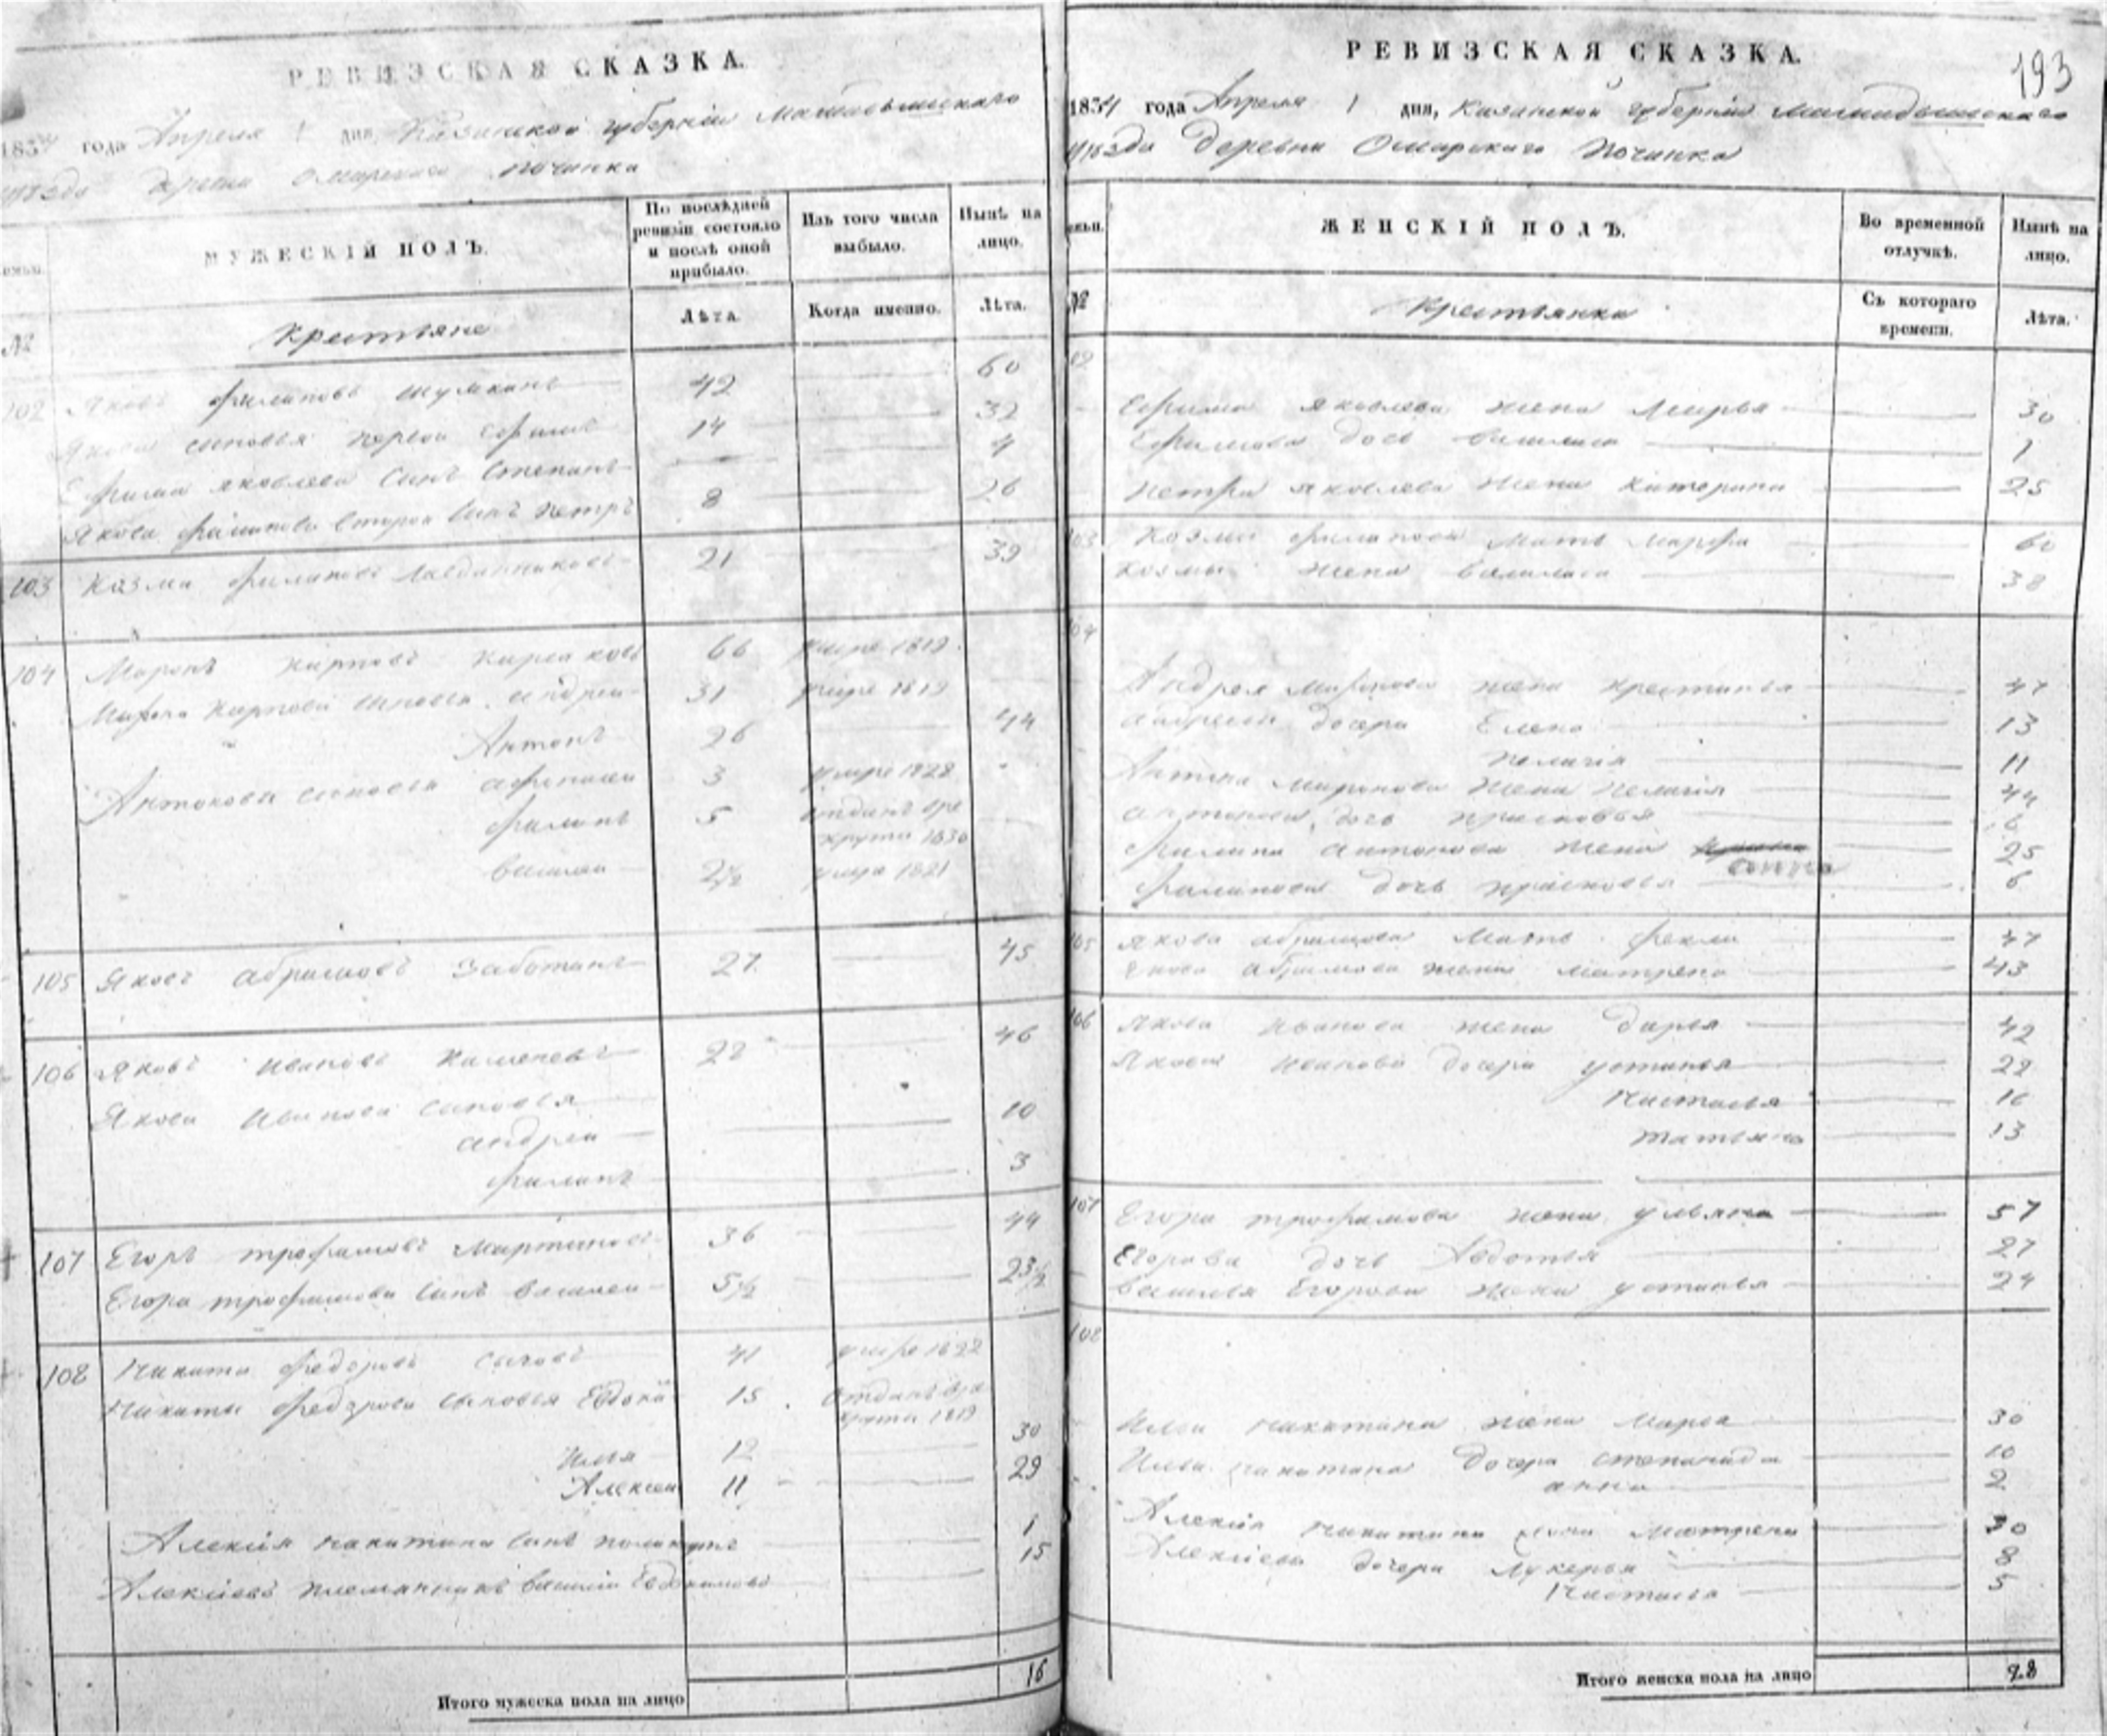 РЕВИЗСКАЯ СКАЗКА.
1834 года Апреля 1 дня, Казанской губернии Мамадышскаго
уѣзда деревни Омарскаго починка
МУЖЕСКІЙ ПОЛЪ.
По послѣдней ревизіи состояло и послѣ оной прибыло.
Изъ того числа выбыло.
Нынѣ на лицо.
№
Крестьяне
Лѣта.
Когда именно.
Лѣта.
102 Яковъ Филиповъ 42 60
Якова сыновья первой Ефимъ 14 32
Ефима Яковлева сынъ Степанъ 4
Якова Филипова второй сынъ Петръ 8 26
103 Козма Филиповъ 21 39
104 Миронъ Карповъ 66 умре 1819
Мирона Карпова сыновья Андреи 31 умре 1819
Антонъ 26 44
Антоновы сыновья Афанасеи 3 умре 1828
Филипъ 5 отданъ в рекруты 1830
Василеи 2½ умре 1821
105 Яковъ Абрамовъ Заботинъ 27 45
106 Яковъ Ивановъ 28 46
Якова Иванова сыновья
Андреи 10
Филипъ 3
107 Егоръ Трофимовъ Мартиновъ 36 44
Егора Трофимова сынъ Василеи 5½ 23½
108 Никита Федоровъ Сычовъ 41 умре 1822
Никиты Федорова сыновья Евдоки 15 отданъ в рекруты 1819
Илья 12 30
Алексеи 11 29
Алексія Никитина сынъ 1
Алексіевъ племянникъ Василіи Евдокимовъ 15
Итого мужеска пола на лицо 16
193
РЕВИЗСКАЯ СКАЗКА.
1834 года Апреля 1 дня, Казанской губерніи Мамадышскаго
уѣзда деревни Омарскаго Починка
ЖЕНСКІЙ ПОЛЪ.
Во временной отлучкѣ.
Нынѣ на лицо.
№
Крестьянки
Съ котораго времени.
Лѣта.
Ефима Яковлева жена Марья 30
Ефимова дочь Василиса 1
Петра Яковлева жена Катерина 25
103 Козмы Филипова мать Марфа 60
Козмы жена Василиса 38
104
Андрея Миронова жена Крестинья 47
Андреевы дочери Елена 13
Пелагія 11
Антона Миронова жена Пелагія 44
Антонова дочь Прасковья 6
Филипа Антонова жена Анна 25
Филипова дочь Прасковья 6
105 Якова Абрамова мать Фекла 47
Якова Абрамова жена Матрена 43
106 Якова Иванова жена Дарья 42
Якова Иванова дочери Устинья 22
Настасья 16
Татьяна 13
107 Егора Трофимова жена Ульяна 57
Егорова дочь Авдотья 27
Василья Егорова жена Устинья 24
108
Ильи Никитина жена Марья 30
Ильи Никитина дочери Степанида 10
Анна 2
Алексія Никитина жена Матрена 30
Алексіевы дочери Лукерья 8
Настасья 5
Итого женска пола на лицо 28